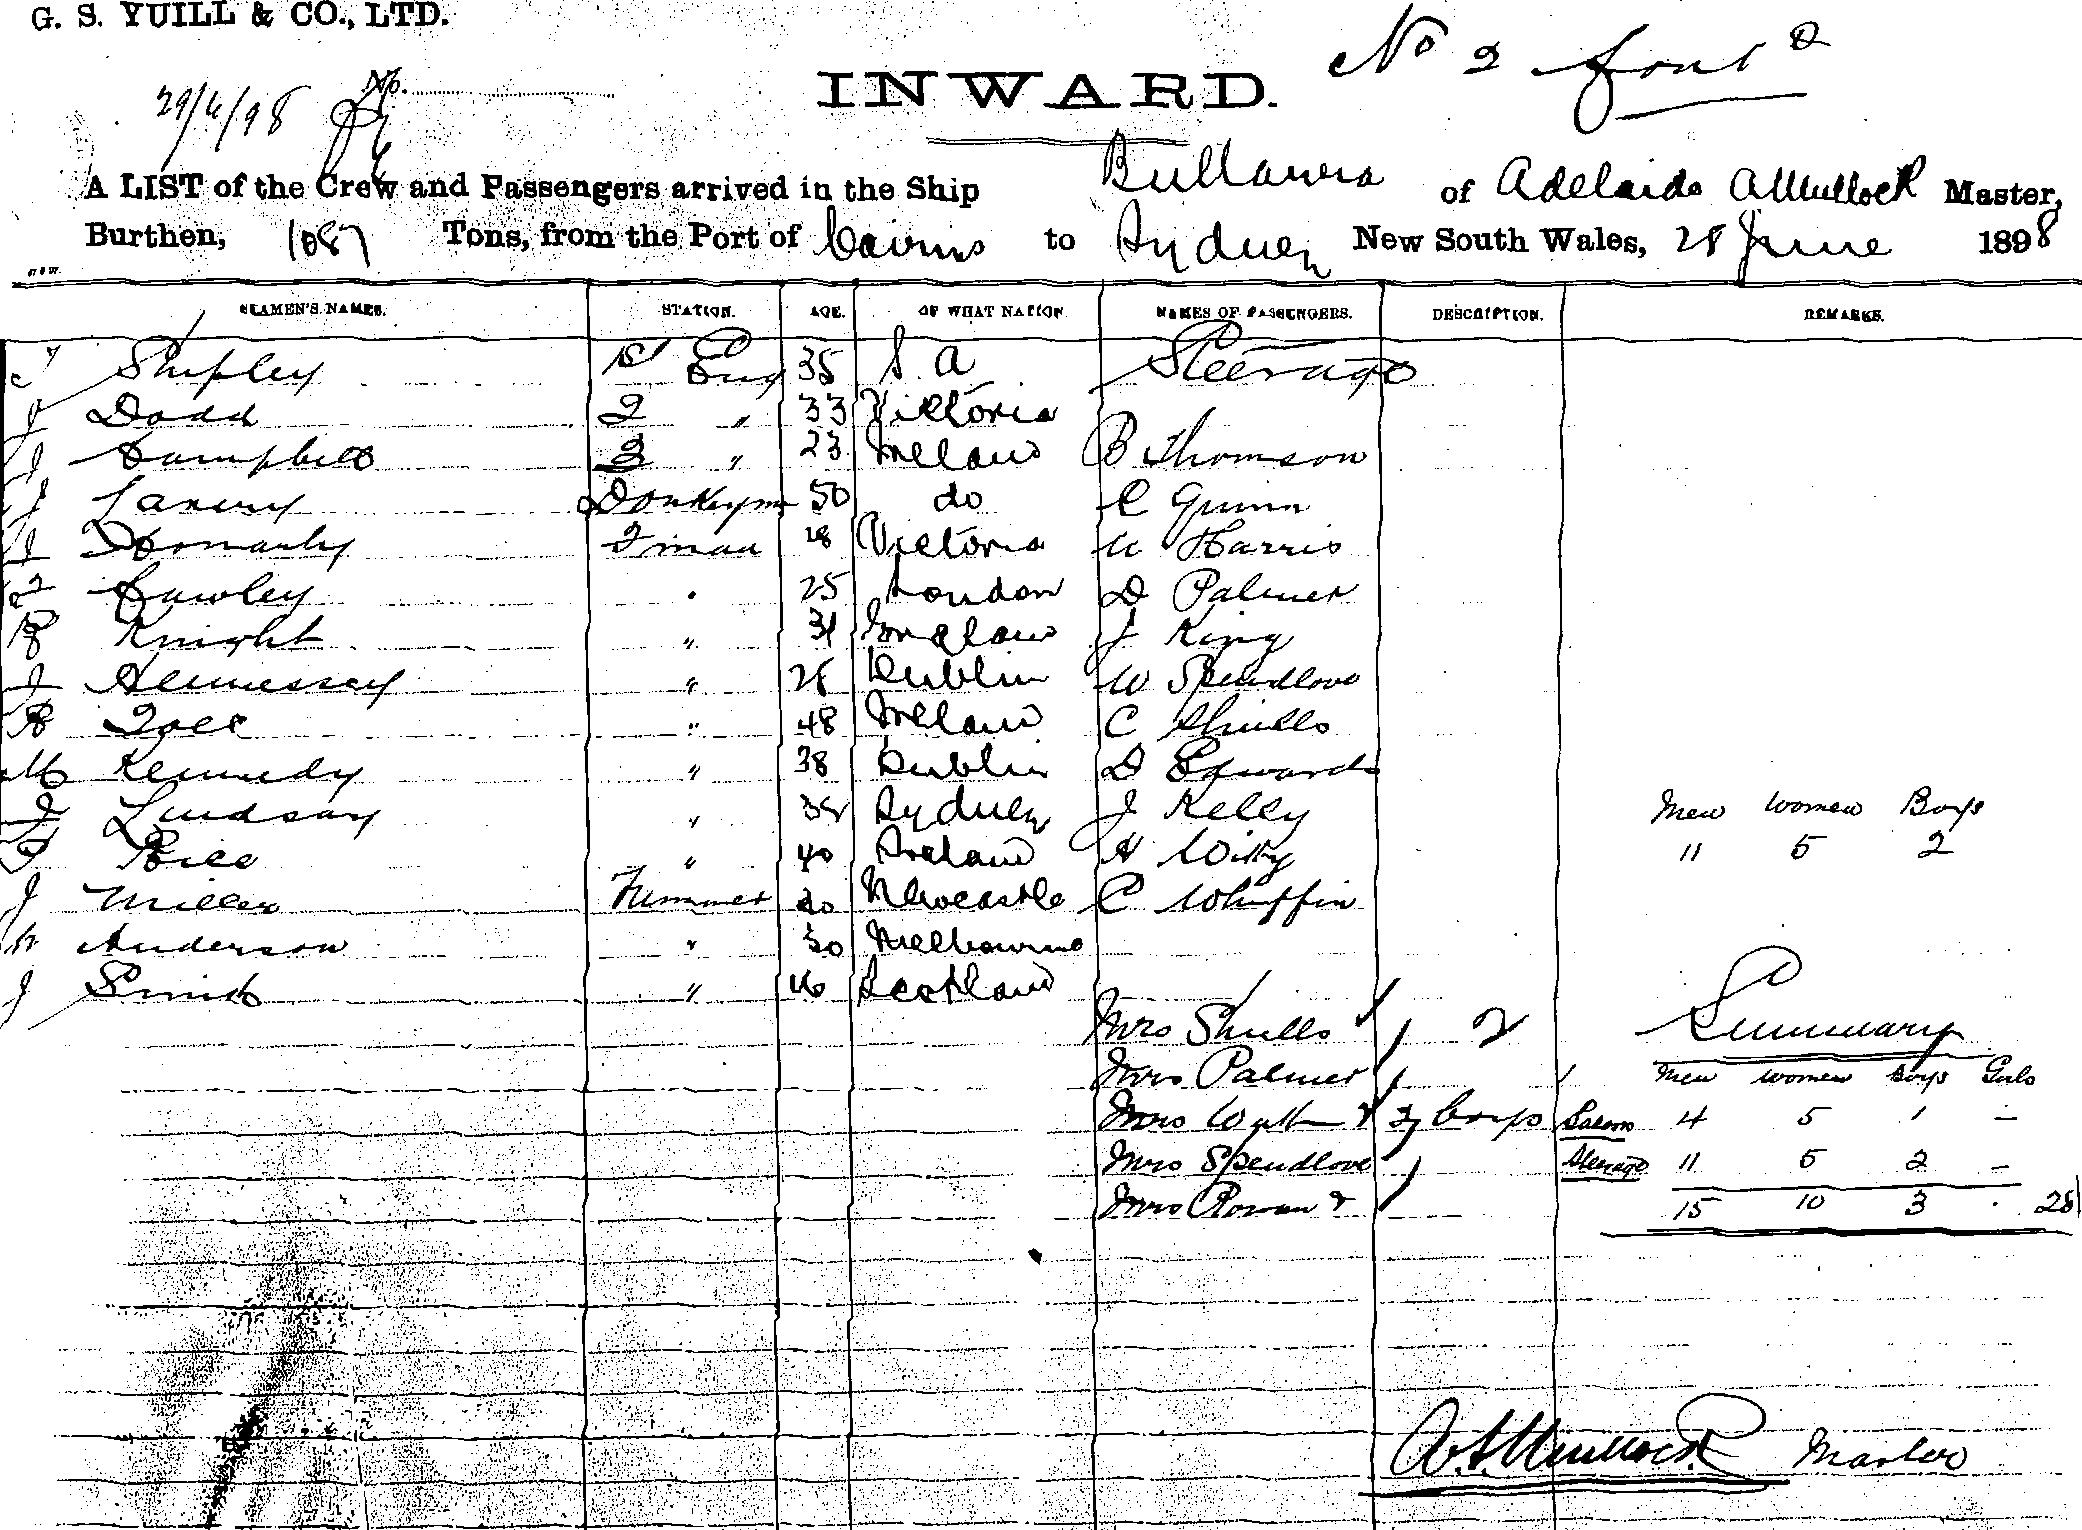 G. S. YUILL & CO., LTD.
No 2 Cont d
29/6/98 No.
INWARD.
A LIST of the Crew and Passengers arrived in the Ship Bullarra of Adelaide A Mullock Master,
Burthen, 1087 Tons, from the Port of Cairns to Sydney New South Wales, 28 June 1898
SEAMEN'S NAMES. STATION. AGE. OF WHAT NATION NAMES OF PASSENGERS. DESCRIPTION. REMARKS.
Shipley 1st Eng 35 S. A Steerage
J Dodd 2 " 33 Victoria
J Campbell 3 " 23 Ireland B Thomson
J Lavery Donkeyman 50 do C Quinn
J F'man 18 Victoria W Harris
Cawley " 25 London D Palmer
Knight " 31 England J King
J Hennessey " 28 Dublin W Spendlove
48 Ireland C Shiells
M Kennedy " 38 Dublin D Edwards
J Lindsay " Sydney J Kelly Men Women Boys
" 40 Ireland H 11 5 2
J Miller Trimmer 20 Newcastle C Whiffin
Anderson " 30 Melbourne
J Smith " Scotland
Mrs Shiells 2 Summary
Mrs Palmer Men Women Boys Girls
Mrs 2 boys Saloon 4 5 1 –
Mrs Spendlove Steerage 11 5 2 –
Mrs Rowan 15 10 3 . 28
Mullock Master